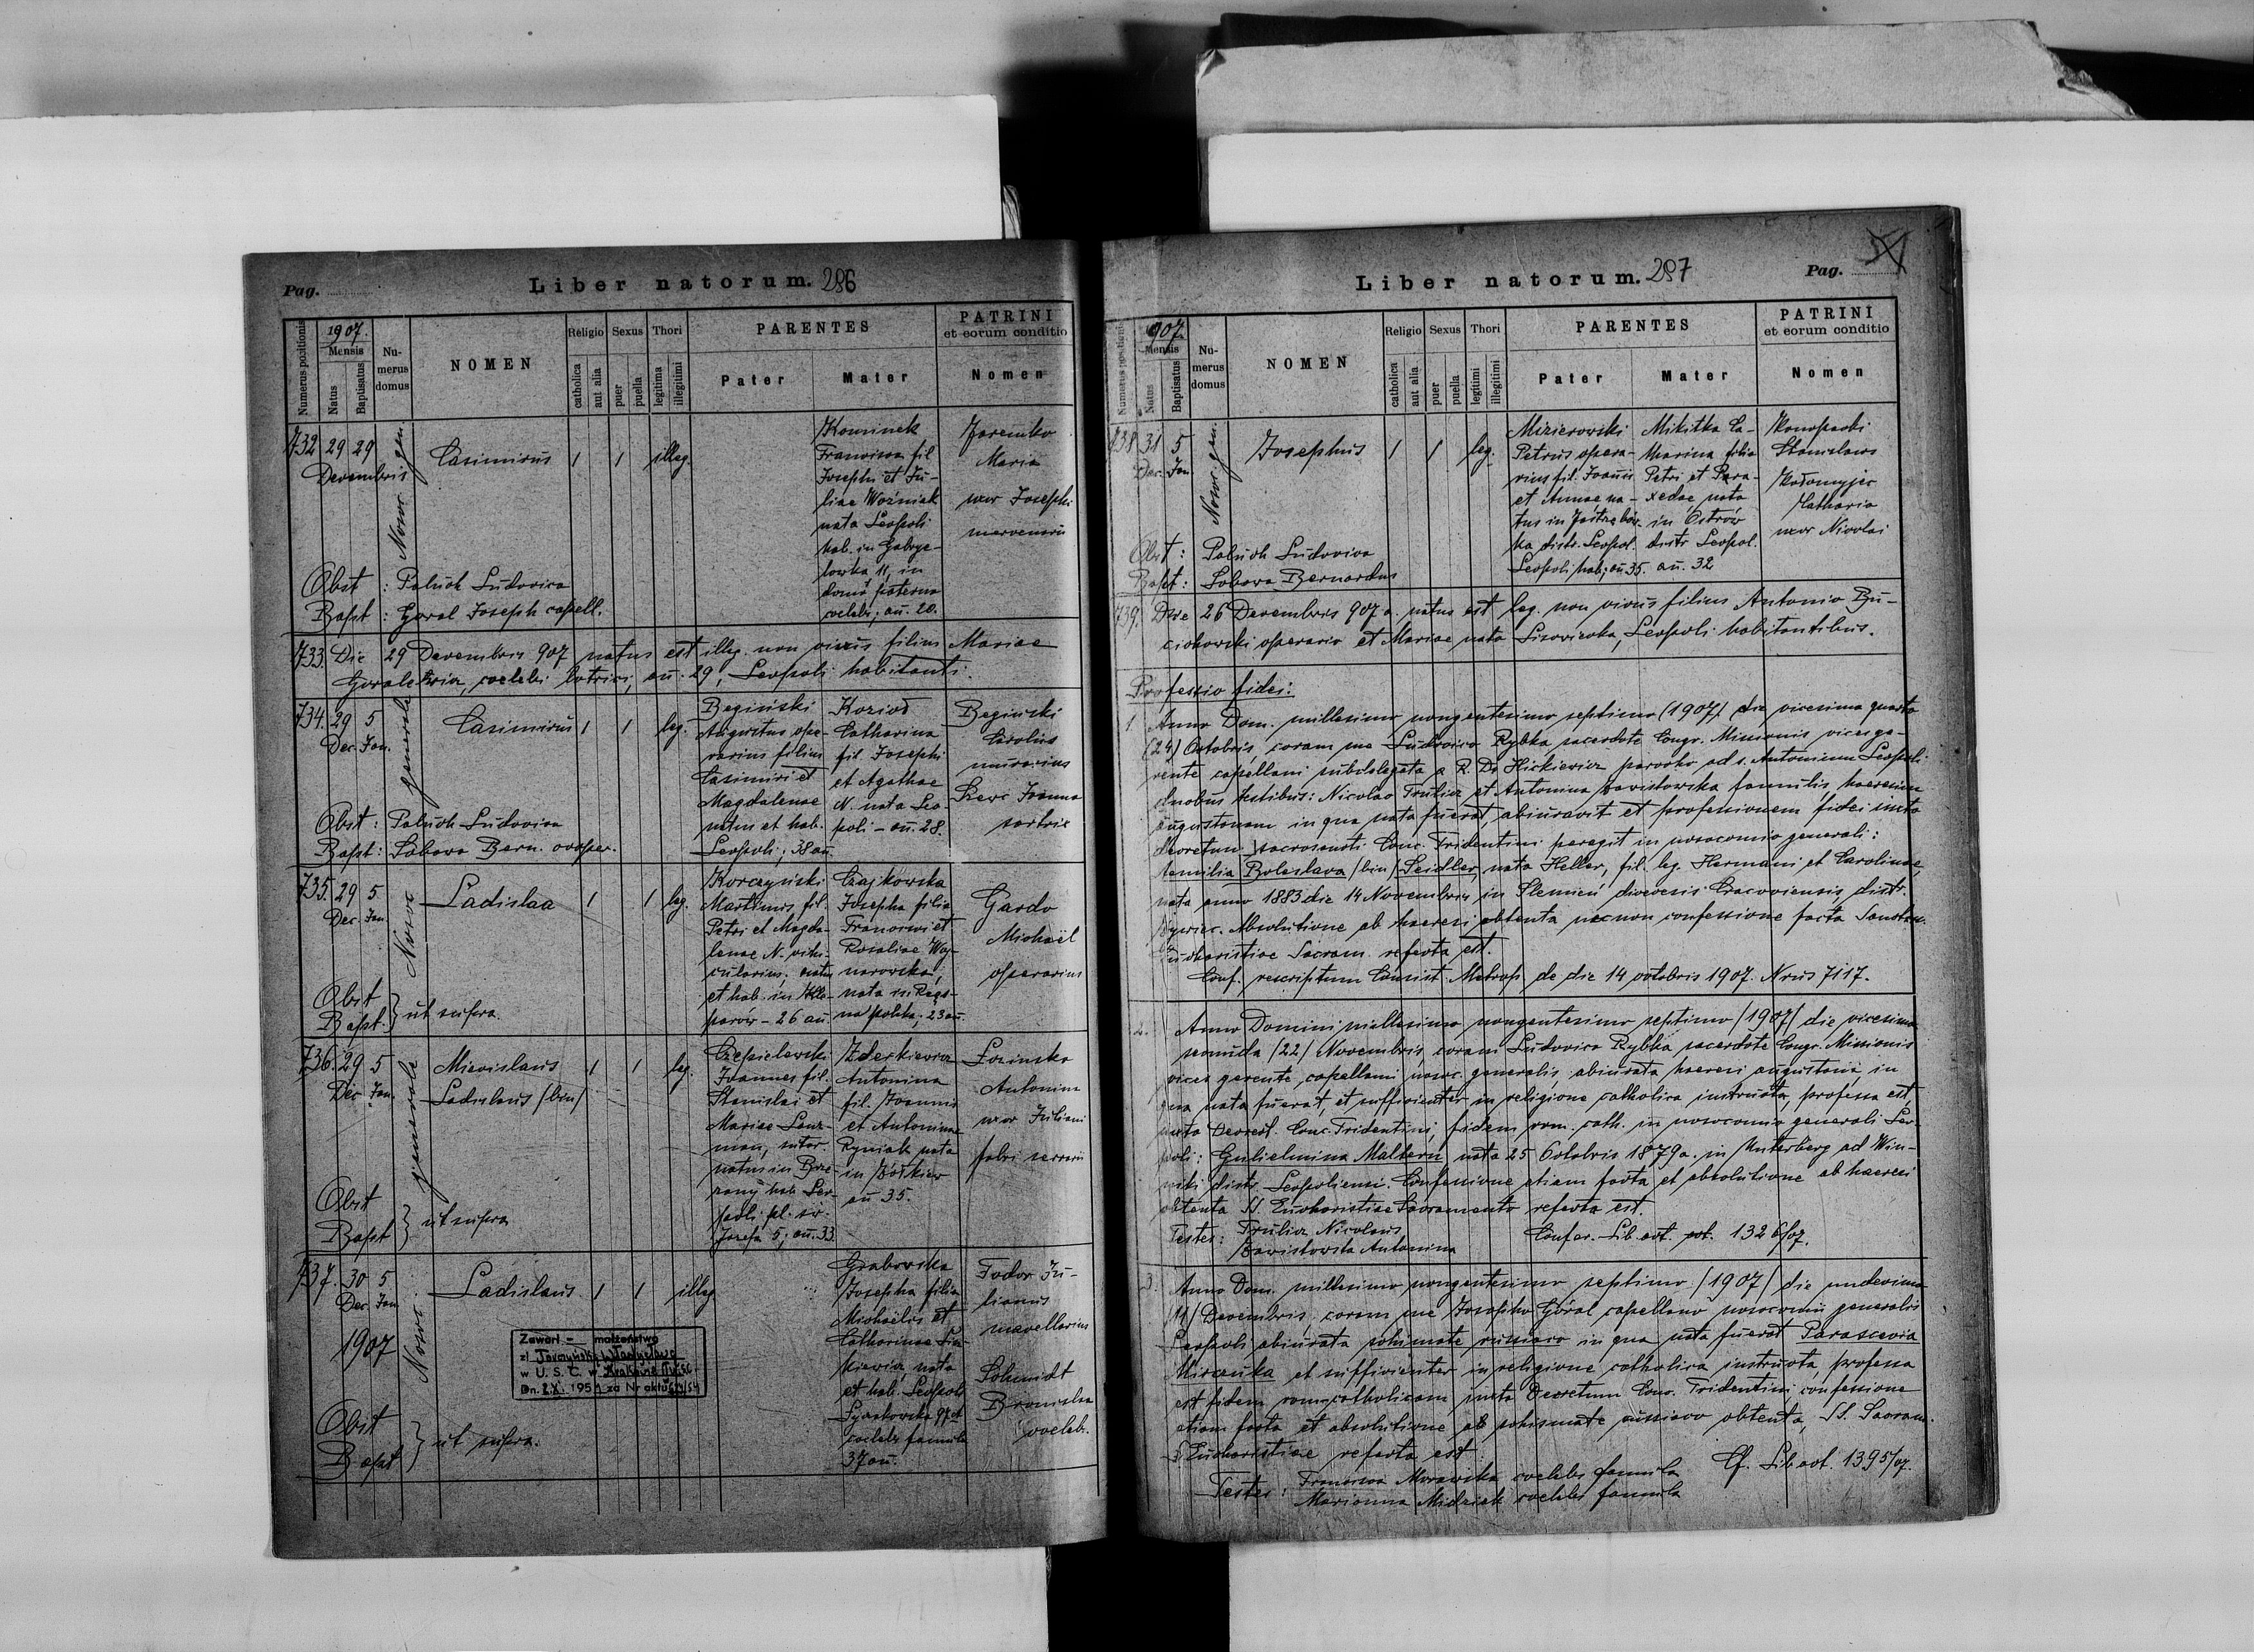 Pag.
Liber natorum. 286
Numerus positionis
1907.
Mensis
Natus
Baptisatus
Nu-
merus
domus
NOMEN
Religio
catholica
aut alia
Sexus
puer
puella
Thori
legitima
illegitimi
PARENTES
Pater
Mater
PATRINI
et eorum conditio
Nomen
732 29 29
Decembris
Casimirus 1 1 illeg.
Kominek
fil
Josephi et Ju-
liae Woźniak
nata Leopoli
hab. in Gabrye-
lowka 11, in
domo paterna
coelebs; an. 20.
Jaremko
Maria
uxor Josephi
Obst : Paluch Ludovica
Bapt : Goral Joseph capell.
733. Die 29 Decembris 907 natus est illeg. non vivus filius Mariae
coelebs an. 29, Leopoli habitanti.
734. 29 5
Dec. Jan.
generale
Casimirus 1 1 leg.
Beginski
Augustus ope-
rarius filius
Casimiri et
Magdalenae
natus et hab.
Leopoli; 38 an.
Catharina
fil. Josephi
et Agathae
N. nata Leo-
poli - an. 28.
Beginski
Carolus
murarius
Szewc Joanna
sartrix
Obst : Paluch Ludovica
Bapt : Sobawa Bern.
735. 29 5
Dec. Jan.
Ladislaa 1 1 leg.
Korczyński
Martinus fil.
Petri et Magda-
lenae N.
natus
et hab. in Kle-
parów - 26 an.
Czajkowska
Josepha filia
Francisci et
Rosaliae
nata in
23 an.
Gardo
Michaël
operarius
Obst
Bapt. } ut supra
736. 29 5
Dec. Jan.
generale
Miecislaus
Ladislaus (bin) 1 1 leg.
Joannes fil.
Stanislai et
Mariae
sutor
natus in Brze-
zany hab. Leo-
poli pl. św.
Józefa 5; an. 33
Zderkiewicz
Antonina
fil. Joannis
et Antoninae
Ryniak nata
in Żółkiew
an 35.
Łozinska
Antonina
uxor Juliani
fabri ferrarii
Obst
Bapt } ut supra
737. 30 5
Dec. Jan.
1907
Ladislaus 1 1 illeg
Grabowska
Josepha filia
Michaëlis et
Catharinae
nata
et hab. Leopoli
coelebs famula
37 an.
Fodor Ju-
lianus
Schmidt
Bronislaa
coelebs.
Zawarł - małżeństwo
z/
w U. S. C. w
Dn. 1951 za Nr aktu
Obst
Bapt } ut supra.
Liber natorum. 287
Pag.
Numerus positionis
907.
Mensis
Natus
Baptisatus
Nu-
merus
domus
NOMEN
Religio
catholica
aut alia
Sexus
puer
puella
Thori
legitimi
illegitimi
PARENTES
Pater
Mater
PATRINI
et eorum conditio
Nomen
738. 31 5
Dec. Jan
Josephus 1 1 leg.
Petrus opera-
rius fil. Joannis
et Annae na-
tus in
ka distr. Leopol.
Leopoli hab; an 35.
Mikitka Ca-
tharina filia
Petri et Para-
xedae nata
in Ostrów
distr Leopol.
an. 32
Stanislaus
Catharia
uxor Nicolai
Obst : Paluch Ludovica
Bapt : Sobawa Bernardus
739. Die 26 Decembris 907 a. natus est leg. non vivus filius Antonio Bu-
ciokowski operario et Mariae nata Leopoli habitantibus.
Professio fidei:
1 Anno Dom. millesimo nongentesimo septimo (1907) die vicesima quarta
(24) Octobris, coram me Ludovico Rybka sacerdote Congr. Missionis vices ge-
rente capellani subdelegata a R. Do Hickiewicz parocho ad s. Antonium Leopoli
duobus testibus: Nicolao Trulicz et Antonina Zawistowska famulis haeresim
augustanam in qua nata fuerat, abiuravit et professionem fidei iuxta
decretum sacrosancti Conc. Tridentini peregit in nosocomio generali:
Aemilia Boleslava (bin) Seidler nata Heller, fil. leg. Hermani et Carolinae,
nata anno 1883 die 14 Novembris in Slemień dioecesis Cracoviensis, distr.
Żywiec. Absolutione ab haeresi obtenta necnon confessione facta Sanctiss.
Eucharistiae Sacram. refecta est.
Conf. rescriptum Consist. Metrop. de die 14 octobris 1907. Nrus 7117.
2. Anno Domini millesimo nongentesimo septimo (1907) die vicesima
secunda (22) Novembris, coram Ludovico Rybka sacerdote Congr. Missionis
vices gerente capellani nosoc. generalis abiurata haeresi augustana, in
qua nata fuerat, et sufficienter in religione catholica instructa, professa est,
iuxta Decret. Conc. Tridentini, fidem rom. cath. in nosocomio generali Leo-
poli: Gulielmina Maltern nata 25 Octobris 1879 a. in Unterberg ad Win-
niki distr Leopoliensi. Confessione etiam facta et absolutione ab haeresi
obtenta SS. Eucharistiae Sacramento refecta est.
Testes: Trulicz Nicolaus
Zawistowska Antonina
Confer. Lib. act. 1326/07.
3. Anno Dom. millesimo nongentesimo septimo (1907) die undecima
(11) Decembris coram me Josepho Góral capellano nosocomii generalis
Leopoli abiurata schismate russiaco in qua nata fuerat Parascevia
et sufficienter in religione catholica instructa, professa
est fidem rom. catholicam iuxta Decretum Conc. Tridentini, confessione
etiam facta et absolutione ab schismate russiaco obtenta, SS. Sacram.
Eucharistiae refecta est.
Testes: Francisca Morawska coelebs famula
Marianna Midziak coelebs famula
Cf. Lib act. 1395/07.